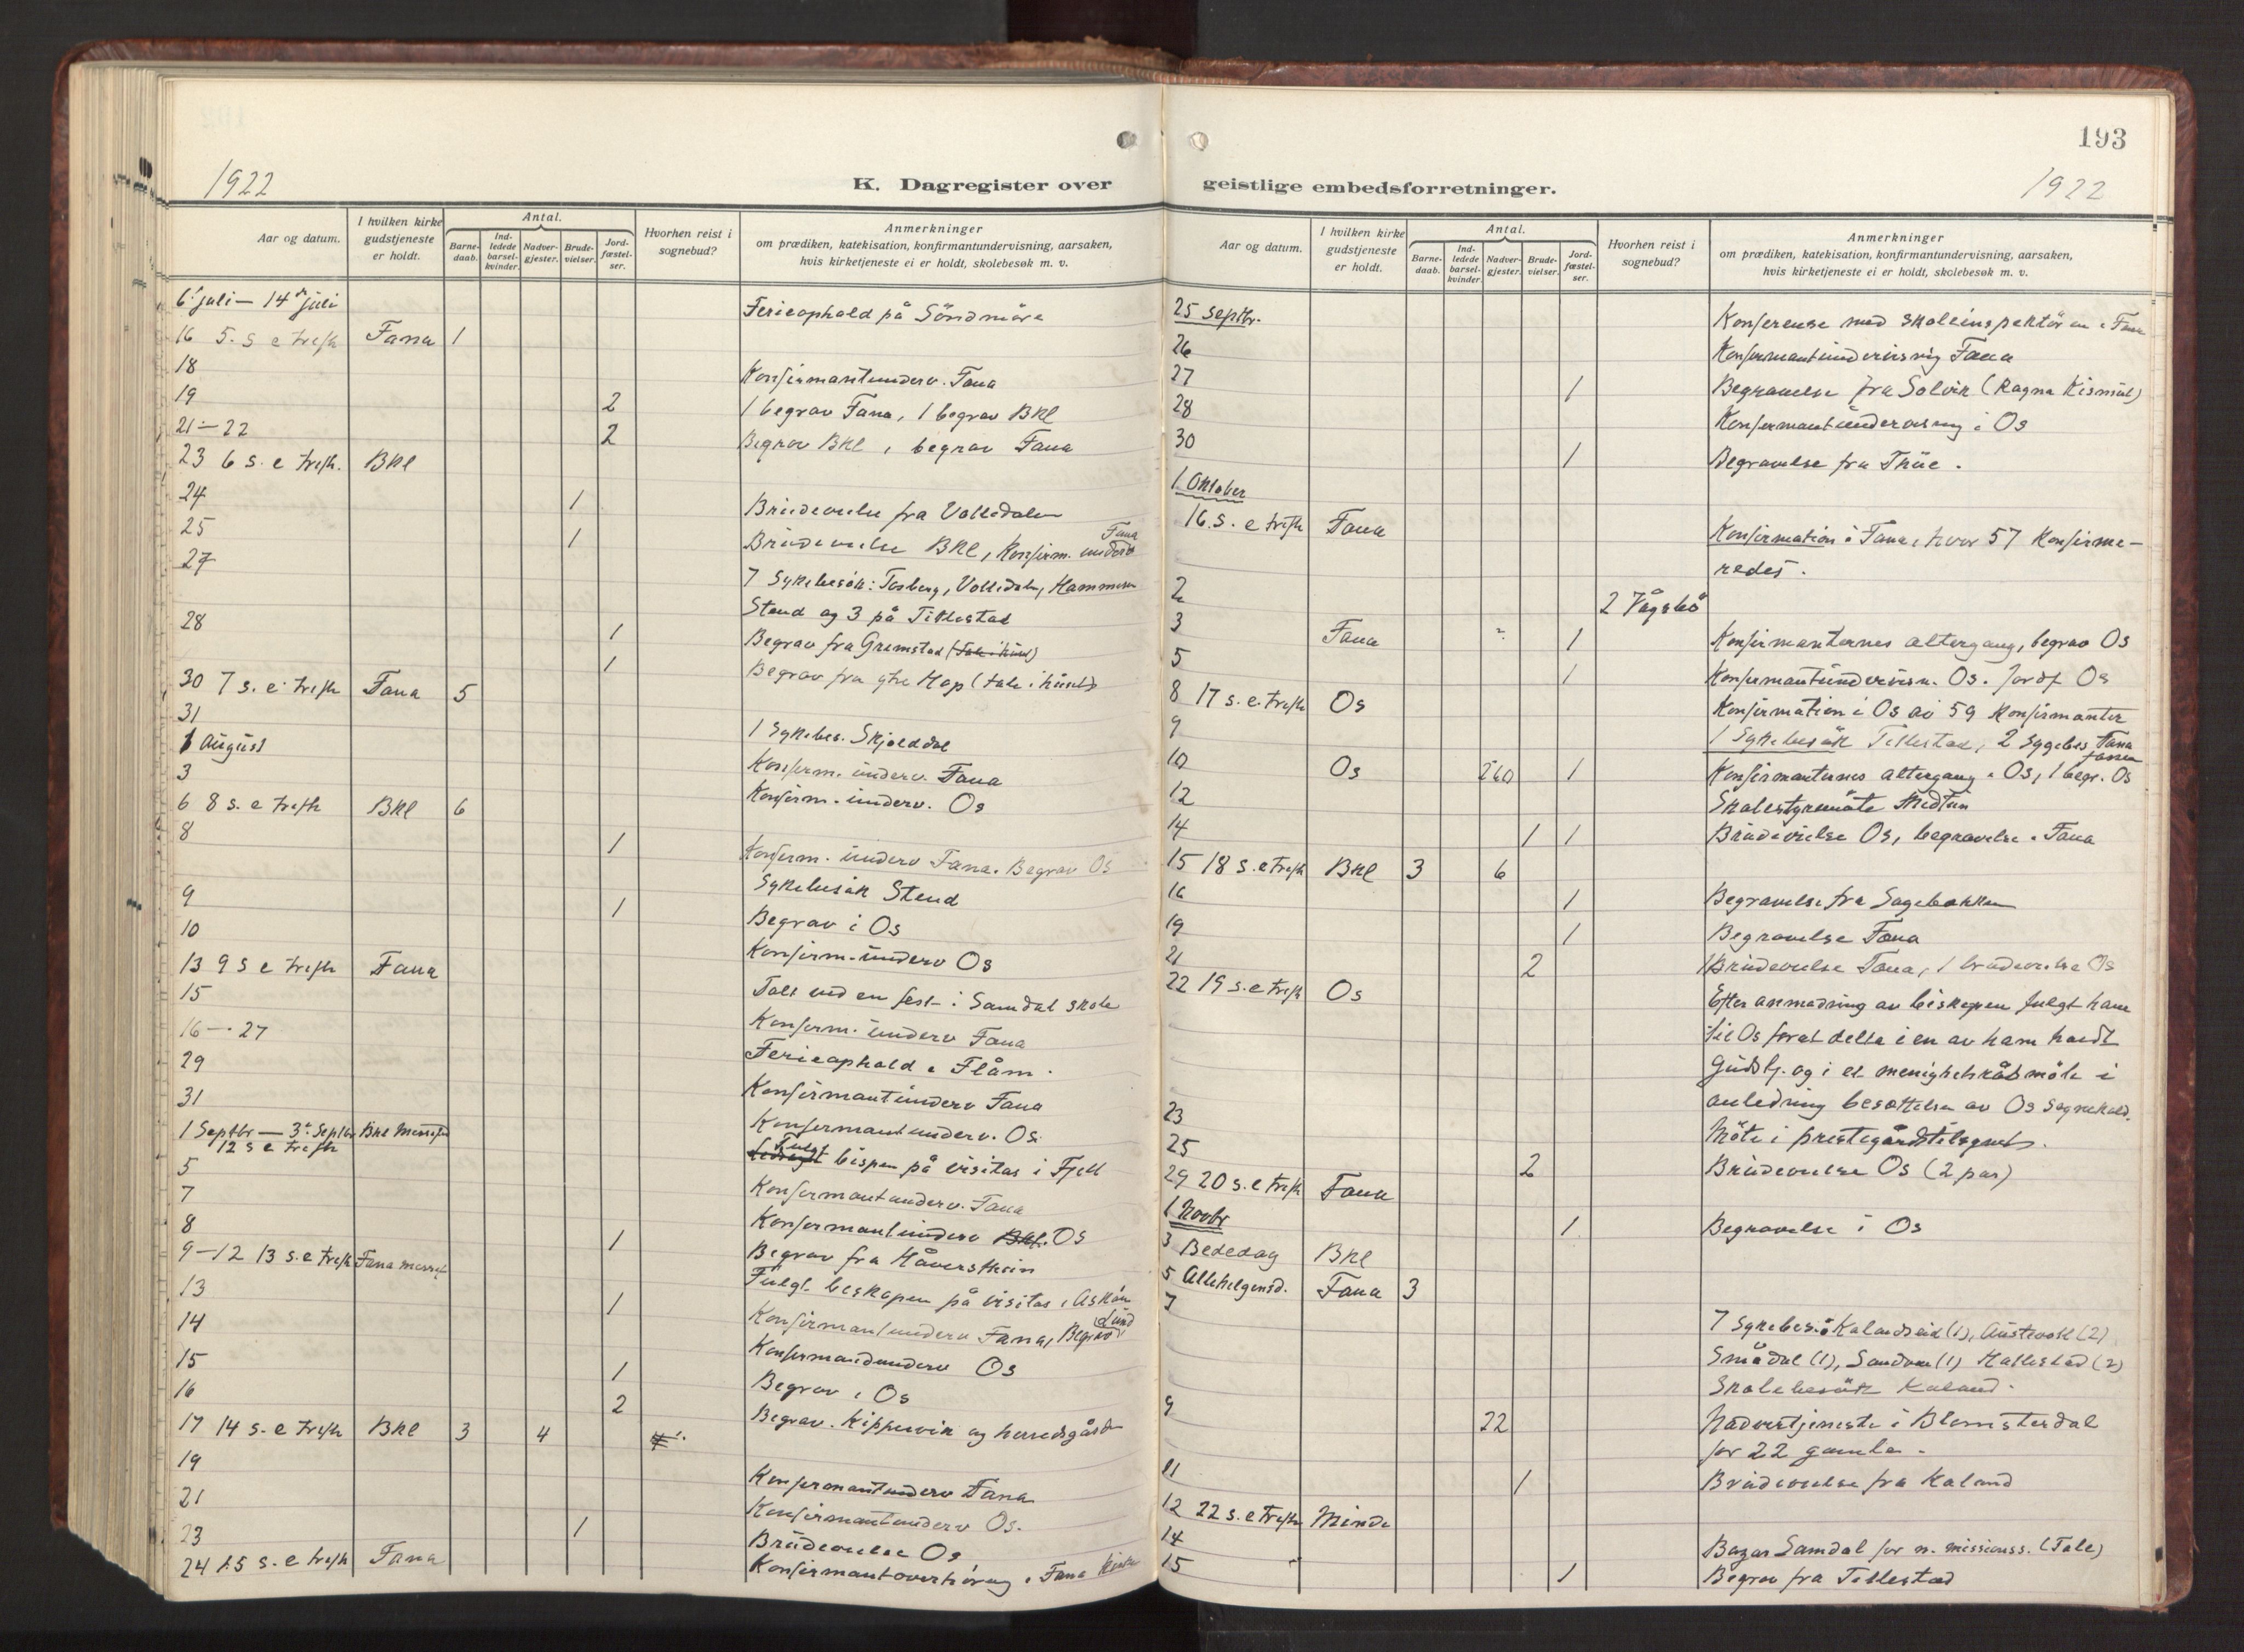 193
1922
K. Dagregister over
geistlige embedsforretninger.
1922
Aar og datum.
I hvilken kirke gudstjeneste er holdt.
Antal.
Barnedaab.
Indledede barselkvinder.
Nadvergjester.
Brudevielser.
Jordfæstelser.
Hvorhen reist i sognebud?
Anmerkninger
om prædiken, katekisation, konfirmantundervisning, aarsaken,
hvis kirketjeneste ei er holdt, skolebesøk m. v.
6' juli – 14 de juli Ferieophold på Söndmöre
16 5. s e trefh Fana 1
18 Konfirmantunderv. Fana
19 2 1 begrav Fana, 1 begrav BKl
21 – 22 2 Begrav BKl, begrav Fana
23 6 s. e trefh. BKl
24 1 Brudevielse fra Valledalen
25 1 Brudevielse BKl, Konfirm. underv Fana
27 7 Sykebesök: Tosberg, Volledalen, Hammeren
Stend og 3 på Titlestad
28 1 Begrav fra Grimstad (tale i huset)
1 Begrav fra ytre Hop (tale i huset)
30 7 s. e. trefh Fana 5
31 1 Sykebes. Skjolddal
1 August Konfirm. underv. Fana
3 Konfirm. underv. Os
6 8 s. e trefh BKl 6
8 1 Konfirm. underv Fana. Begrav Os
Sykebesök Stend
9 1 Begrav i Os
10 Konfirm. underv Os
13 9 s e trefh Fana
15 Talt ved en fest i Samdal skole
Konfirm. underv Fana
16 – 27 Ferieophold i Flåm.
29 Konfirmantunderv Fana
31 Konfirmantunderv. Os.
1 Septbr – 3' Septbr BKl
12 s e trefh
Fulgt bispen på visitas i Fjell
5 Konfirmantunderv. Fana
7 Konfirmantunderv BKl. Os
8 1 Begrav fra Håversthein
9 – 12 13 s. e trefh Fana
Fulgt biskopen på visitas i Asköy
13 1 Konfirmantunderv Fana, Begrav (Lund)
14 Konfirmandunderv Os
15 1 Begrav i Os
16 2 Begrav. Kippervik og herredsgården
17 14 s. e trefh BKl 3 4
19 Konfirmantunderv Fana
21 Konfirmantunderv Os.
23 1 Brudevielse Os
24 15 s. e trefh Fana Konfirmantoverhöring i Fana kirke
Aar og datum.
I hvilken kirke gudstjeneste er holdt.
Antal.
Barnedaab.
Indledede barselkvinder.
Nadvergjester.
Brudevielser.
Jordfæstelser.
Hvorhen reist i sognebud?
Anmerkninger
om prædiken, katekisation, konfirmantundervisning, aarsaken,
hvis kirketjeneste ei er holdt, skolebesøk m. v.
25 septbr. Konferense med skoleinspektören i Fana
26 Konfirmantundervisnig Fana
27 1 Begravelse fra Solvik (Ragna Kismul)
28 Konfirmantundervisning i Os
30 1 Begravelse fra Thue.
1 Oktober
16. s. e trefh Fana Konfirmation i Fana, hvor 57 konfirme-
redes.
2 2 Vågsbö
3 Fana 1 Konfirmanternes altergang, begrav Os
5 1 Konfirmantundervisn. Os. Jordf Os
8 17 s. e. trefh Os Konfirmation i Os av 59 konfirmanter
9 1 Sykebesök Titlestad, 2 sygebes Fana
10 Os 260 1 Konfirmanternes altergang i Os, 1 begr. Os
12 Skolestyremöte Midtun
14 1 1 Brudevielse Os, begravelse i Fana
15 18 s. e trefh BKl 3 6
16 1 Begravelse fra Sagebakken
19 1 Begravelse Fana
21 2 1 Brudevielse Fana, 1 brudevielse Os
22 19 s. e trefh Os Efter anmodning av biskopen fulgt ham
til Os forat delta i en av ham holdt
Gudstj. og i et menighetsråds möte i
anledning besættelsen av Os sognekald.
23 Möte i prestegårdstilsynet.
25 2 Brudevielse Os (2 par)
29 20 s. e trefh Fana
1 Novbr 1 Begravelse i Os
3 Bededag BKl
5 Allehelgensd. Fana 3
7 7 Sykebes: Kalandseid (1), Austevoll (2)
Smådal (1), Sandven (1) Hatlestad (2)
Skolebesök Kaland.
9 22 Nadverstjeneste i Blomsterdal
for 22 gamle.
11 1 Brudevielse fra Kaland
12 22 s. e trefh Minde
14 Bazar Samdal for n. missionss. (Tale)
15 1 Begrav fra Titlestad